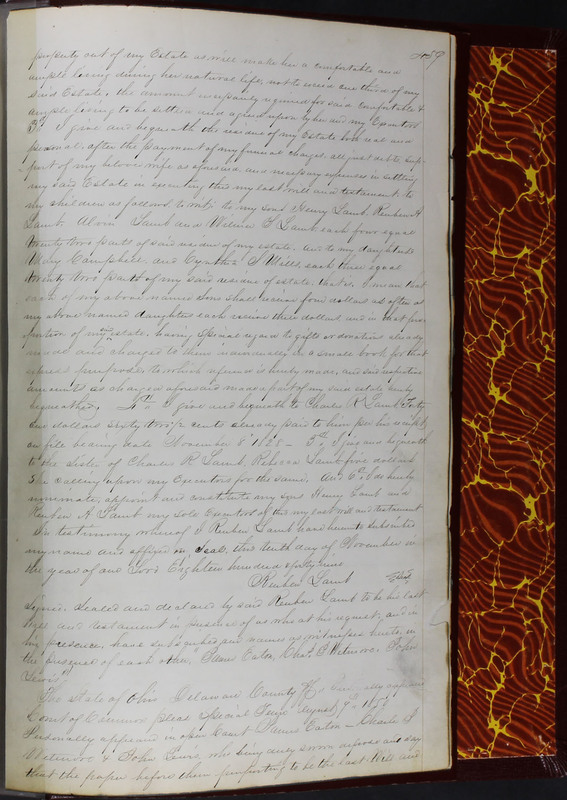 459
property out of my Estate as will make her a comfortable and
ample living during her natural life, not to exceed one third of my
said Estate, the amount necessary required for said comfortable &
ample living to be settled and agreed upon by her and my Executors
3rd I give and bequeath the residue of my Estate both real and
personal after the payment of my funeral charges, all just debts, sup-
port of my beloved wife as aforesaid, and necessary expenses in settling
my said Estate in executing this my last will and testament to
my children as follows to wit: to my sons Henry Lamb, Reuben A
Lamb, Alvin Lamb and William Lamb each four equal
twenty two parts of said residue of my estate, and to my daughters
Mary Campbell and Cynthia S Mills, each three equal
twenty two parts of my said residue of estate, that is, I mean that
each of my above named sons shall receive four dollars as often as
my above named daughters each receive three dollars and in that pro-
portion of my estate, having special regard to gifts or donations already
made and charged to them in a small book for that
purpose to which reference is hereby made, and said respective
amounts as charged aforesaid made a part of my said estate hereby
bequeathed, 4th I give and bequeath to Charles R Lamb Forty
one dollars sixty two 1/2 cents already paid to him per his receipt
on file bearing date November 8th 1828 - 5th I give and bequeath
to the sister of Charles R. Lamb, Rebecca Lamb five dollars
She calling upon my Executors for the same. And 6th I do hereby
nominate, appoint and constitute my sons Henry Lamb and
Reuben A Lamb my sole Executors of this my last will and testament
In testimony whereof I Reuben Lamb have hereunto subscribed
my name and affixed my Seal, this tenth day of November in
the year of our Lord Eighteen hundred
Reuben Lamb Seal
Signed, Sealed and declared by said Reuben Lamb to be his last
Will and testament in presence of us who at his request, and in
his presence, have subscribed our names as witnesses hereto, in
the presence of each other, James Eaton, Chas. Wetmore, John
Lewis
The State of Ohio Delaware County
Court of Common pleas Special Term August
Personally appeared in open Court James Eaton - Charles
Wetmore & John Lewis, who being duly sworn depose and say
that the paper before them purporting to be the last Will and